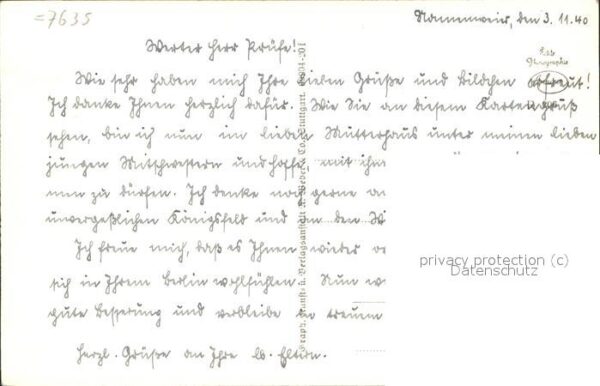 =7635
Nonnenweier, den 3.11.40
Werter Herr Prüfe!
Wie sehr haben mich Ihre lieben Grüße und Bildchen erfreut!
Ich danke Ihnen herzlich dafür. Wie Sie an diesem Kartengruß
sehen, bin ich nun im lieben Mutterhaus unter meinen lieben
jungen Mitschwestern und hoffe, mit ihn
men zu dürfen. Ich denke noch gerne an
unvergeßlichen Königsfeld und an den
Ich freue mich, daß es Ihnen wieder
sich in Ihrem Berlin wohlfühlen. Nun
gute Besserung und verbleibe in treuem
herzl. Grüße an Ihre lb. Eltern.
Graph. Kunst- u. Verlagsanstalt Weber & Co. Stuttgart.
privacy protection (c)
Datenschutz